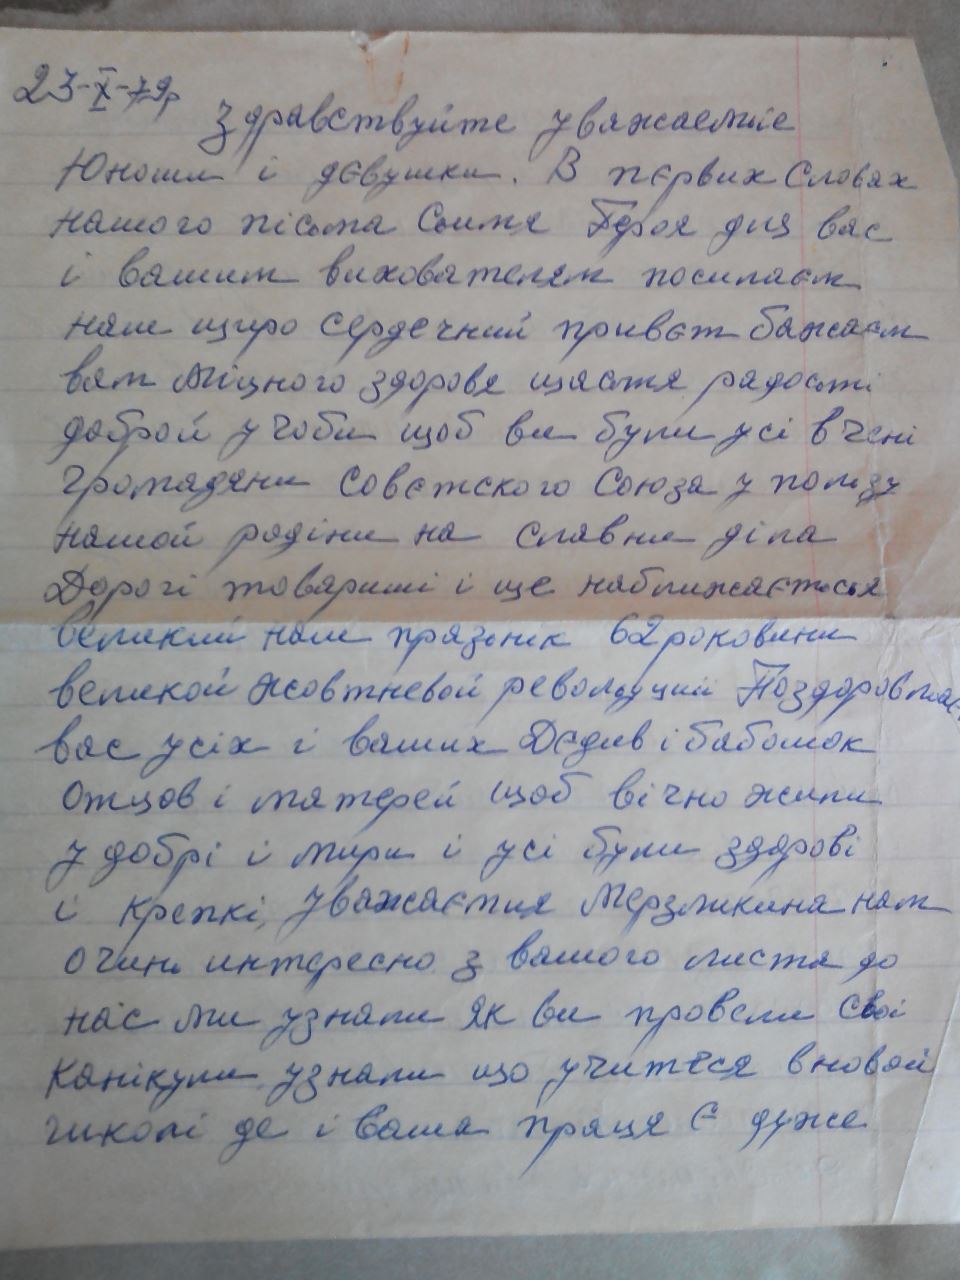 23-X-79р
Здравствуйте уважаеміє
Юноши і дєвушки. В пєрвих словах
нашого пісьма Сьимя Героя для вас
і вашим вихователям посилаєм
наш щиро сердечний привєт бажаєм
вам міцного здоровя щастя радості
доброй учоби щоб ви були усі вчені
громадяни Совєтского Союза у ползу
нашой родіни на славни діла
Дорогі товариші і ще наближається
великий наш празьнік 62 роковини
великой жовтневой революдуции Поздоровляєм
вас усіх і ваших Дєдив і бабошок
Отцов і матерей щоб вічно жили
у добрі і мири і усі були здорові
і крепкі, уважаємия Мерзликина нам
очинь интересно з вашого листа до
нас ми узнали як ви провели свої
канікули узнали що учитеся в новой
школі де і ваша праця є дуже